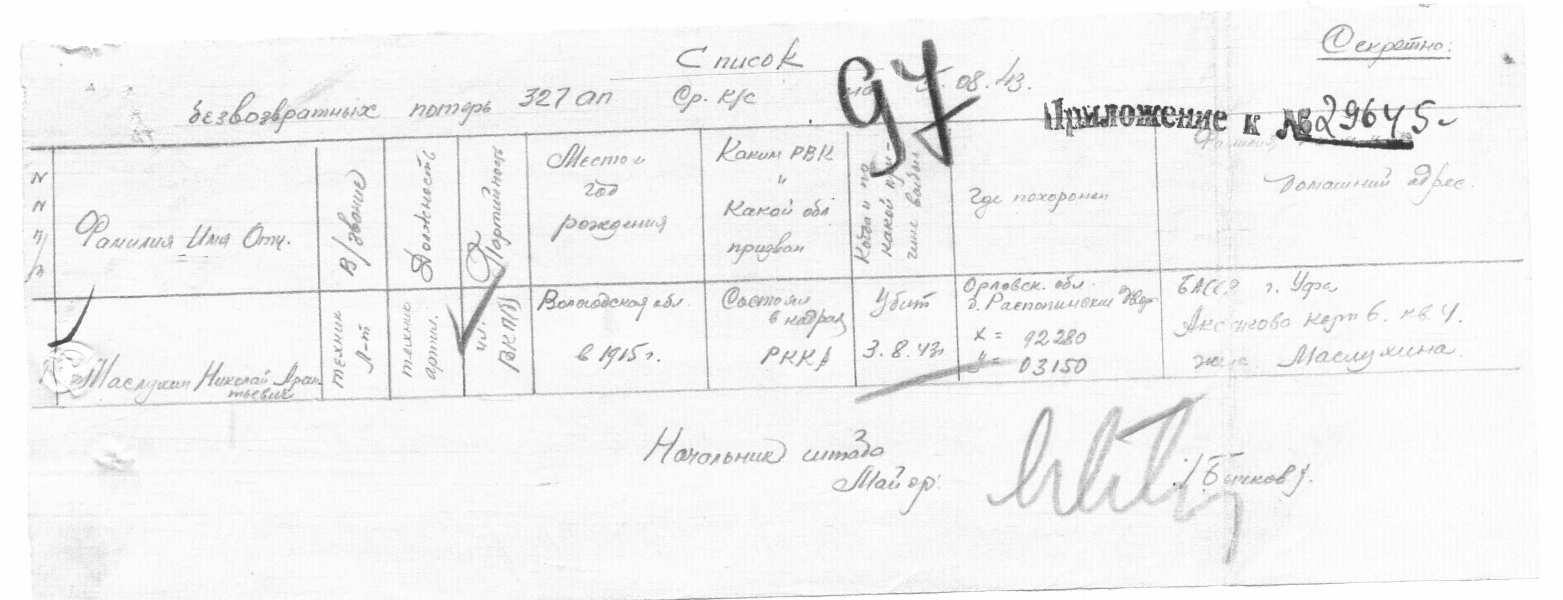 Секретно.
Список
97
безвозвратных потерь 327 ап Ср. к/с на 5.08.43.
Приложение к №29645
NN п/п
Фамилия Имя Отч.
В/звание
Должность
Партийность
Место и год рождения
Каким РВК и какой обл призван
Когда и по какой причине выбыл
Где похоронен
Домашний адрес.
Маслухин Николай Арантьевич
техник л-т
техник артил.
чл. ВКП(б)
Вологодская обл. в 1915 г.
Состоял в кадрах РККА
Убит 3.8.43г
Орловск. обл. д.
x = 92280
y = 03150
БАССР г. Уфа
Аксаково корп 6. кв. 4.
жена Маслухина.
Начальник штаба
Майор.
/Бычков/.